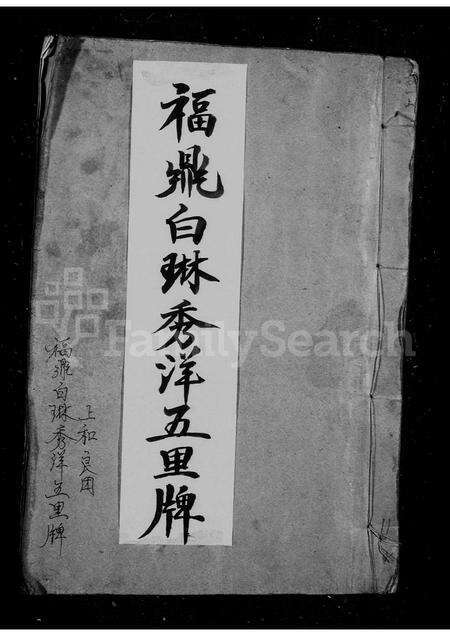 福鼎白琳秀洋五里牌
上和
福鼎白琳秀洋五里牌
FamilySearch